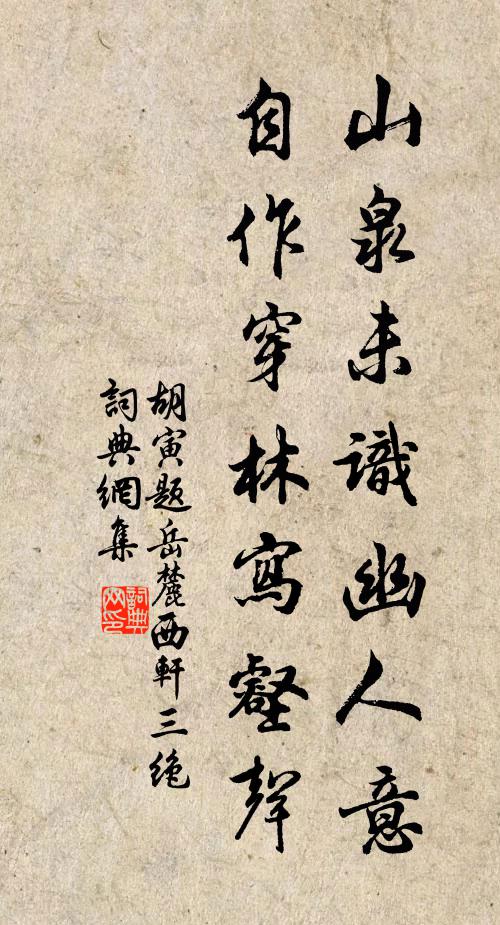 山泉未識幽人意
自作穿林寫壑聲
胡寅题岳麓西軒三绝
詞典網集
詞典网印